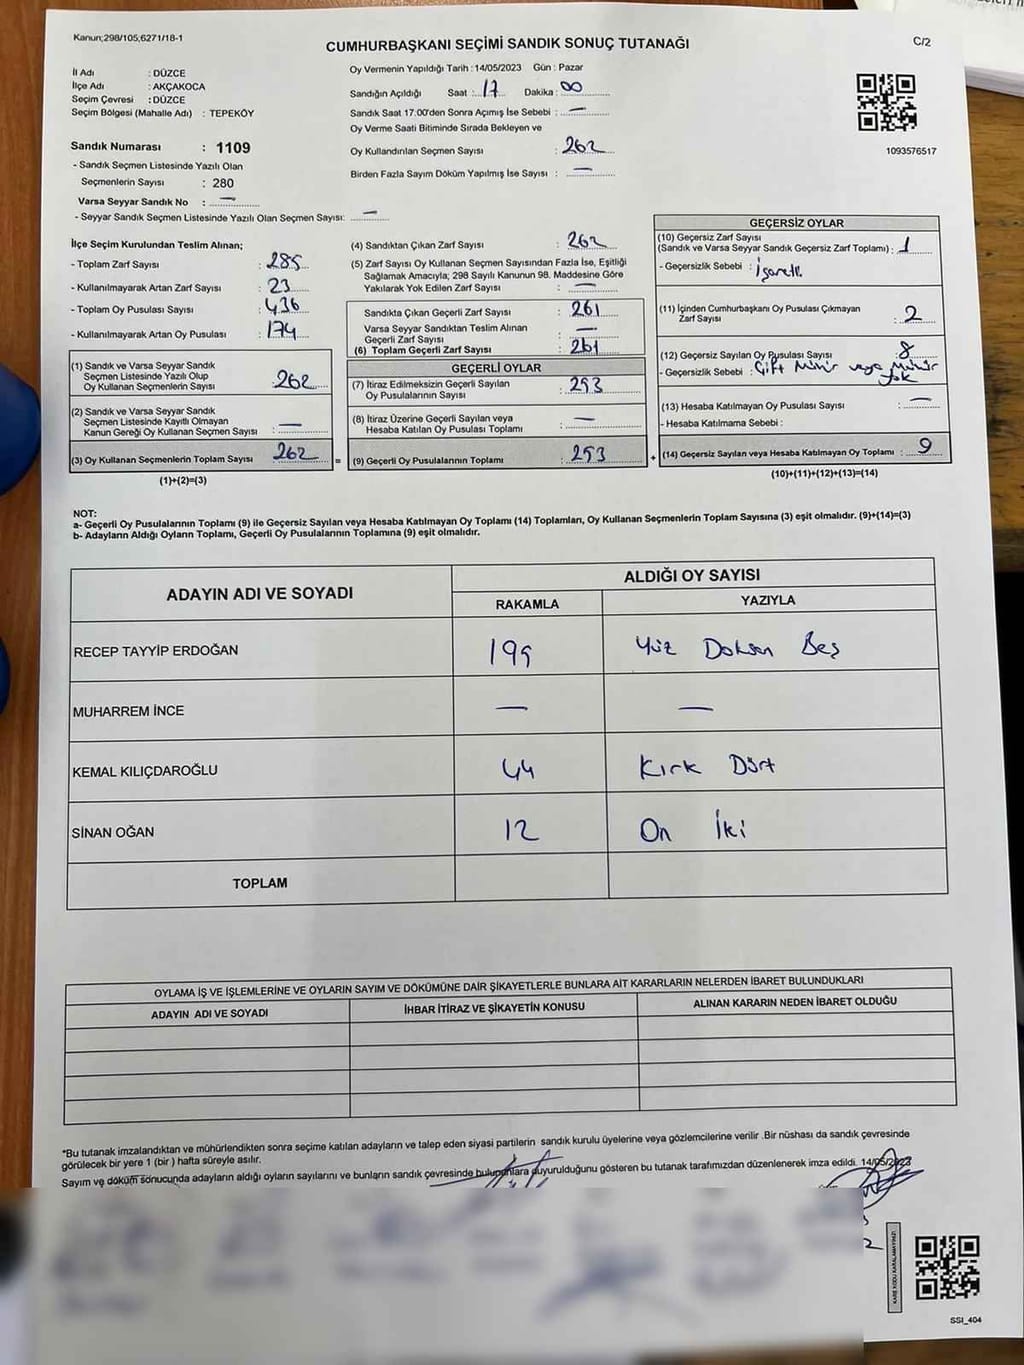 Kanun;298/105;6271/18-1
CUMHURBAŞKANI SEÇİMİ SANDIK SONUÇ TUTANAĞI
C/2
İl Adı : DÜZCE
İlçe Adı : AKÇAKOCA
Seçim Çevresi : DÜZCE
Seçim Bölgesi (Mahalle Adı) : TEPEKÖY
Oy Vermenin Yapıldığı Tarih : 14/05/2023 Gün : Pazar
Sandığın Açıldığı Saat : 17 Dakika : 00
Sandık Saat 17.00'den Sonra Açımış İse Sebebi : —
Oy Verme Saati Bitiminde Sırada Bekleyen ve
Oy Kullandırılan Seçmen Sayısı : 262
Birden Fazla Sayım Döküm Yapılmış İse Sayısı : —
1093576517
Sandık Numarası : 1109
- Sandık Seçmen Listesinde Yazılı Olan
Seçmenlerin Sayısı : 280
Varsa Seyyar Sandık No : —
- Seyyar Sandık Seçmen Listesinde Yazılı Olan Seçmen Sayısı: —
İlçe Seçim Kurulundan Teslim Alınan;
- Toplam Zarf Sayısı : 285
- Kullanılmayarak Artan Zarf Sayısı : 23
- Toplam Oy Pusulası Sayısı : 436
- Kullanılmayarak Artan Oy Pusulası : 174
(1) Sandık ve Varsa Seyyar Sandık
Seçmen Listesinde Yazılı Olup
Oy Kullanan Seçmenlerin Sayısı : 262
(2) Sandık ve Varsa Seyyar Sandık
Seçmen Listesinde Kayıtlı Olmayan
Kanun Gereği Oy Kullanan Seçmen Sayısı : —
(3) Oy Kullanan Seçmenlerin Toplam Sayısı : 262
(1)+(2)=(3)
=
(4) Sandıktan Çıkan Zarf Sayısı : 262
(5) Zarf Sayısı Oy Kullanan Seçmen Sayısından Fazla İse, Eşitliği
Sağlamak Amacıyla; 298 Sayılı Kanunun 98. Maddesine Göre
Yakılarak Yok Edilen Zarf Sayısı : —
Sandıkta Çıkan Geçerli Zarf Sayısı : 261
Varsa Seyyar Sandıktan Teslim Alınan
Geçerli Zarf Sayısı : —
(6) Toplam Geçerli Zarf Sayısı : 261
GEÇERLİ OYLAR
(7) İtiraz Edilmeksizin Geçerli Sayılan
Oy Pusulalarının Sayısı : 253
(8) İtiraz Üzerine Geçerli Sayılan veya
Hesaba Katılan Oy Pusulası Toplamı : —
(9) Geçerli Oy Pusulalarının Toplamı : 253
+
GEÇERSİZ OYLAR
(10) Geçersiz Zarf Sayısı
(Sandık ve Varsa Seyyar Sandık Geçersiz Zarf Toplamı) : 1
- Geçersizlik Sebebi : İşaretli
(11) İçinden Cumhurbaşkanı Oy Pusulası Çıkmayan
Zarf Sayısı : 2
(12) Geçersiz Sayılan Oy Pusulası Sayısı : 8
- Geçersizlik Sebebi : Çift Mühür veya Mühür
yok
(13) Hesaba Katılmayan Oy Pusulası Sayısı : —
- Hesaba Katılmama Sebebi :
(14) Geçersiz Sayılan veya Hesaba Katılmayan Oy Toplamı : 9
(10)+(11)+(12)+(13)=(14)
NOT:
a- Geçerli Oy Pusulalarının Toplamı (9) ile Geçersiz Sayılan veya Hesaba Katılmayan Oy Toplamı (14) Toplamları, Oy Kullanan Seçmenlerin Toplam Sayısına (3) eşit olmalıdır. (9)+(14)=(3)
b- Adayların Aldığı Oyların Toplamı, Geçerli Oy Pusulalarının Toplamına (9) eşit olmalıdır.
ADAYIN ADI VE SOYADI
ALDIĞI OY SAYISI
RAKAMLA YAZIYLA
RECEP TAYYİP ERDOĞAN 195 Yüz Doksan Beş
MUHARREM İNCE — —
KEMAL KILIÇDAROĞLU 44 Kırk Dört
SİNAN OĞAN 12 On İki
TOPLAM
OYLAMA İŞ VE İŞLEMLERİNE VE OYLARIN SAYIM VE DÖKÜMÜNE DAİR ŞİKAYETLERLE BUNLARA AİT KARARLARIN NELERDEN İBARET BULUNDUKLARI
ADAYIN ADI VE SOYADI İHBAR İTİRAZ VE ŞİKAYETİN KONUSU ALINAN KARARIN NEDEN İBARET OLDUĞU
*Bu tutanak imzalandıktan ve mühürlendikten sonra seçime katılan adayların ve talep eden siyasi partilerin sandık kurulu üyelerine veya gözlemcilerine verilir .Bir nüshası da sandık çevresinde
görülecek bir yere 1 (bir ) hafta süreyle asılır.
Sayım ve döküm sonucunda adayların aldığı oyların sayılarını ve bunların sandık çevresinde bulunanlara duyurulduğunu gösteren bu tutanak tarafımızdan düzenlenerek imza edildi. 14/05/2023
KARE KODU KARALAMAYINIZ!
SSI_404